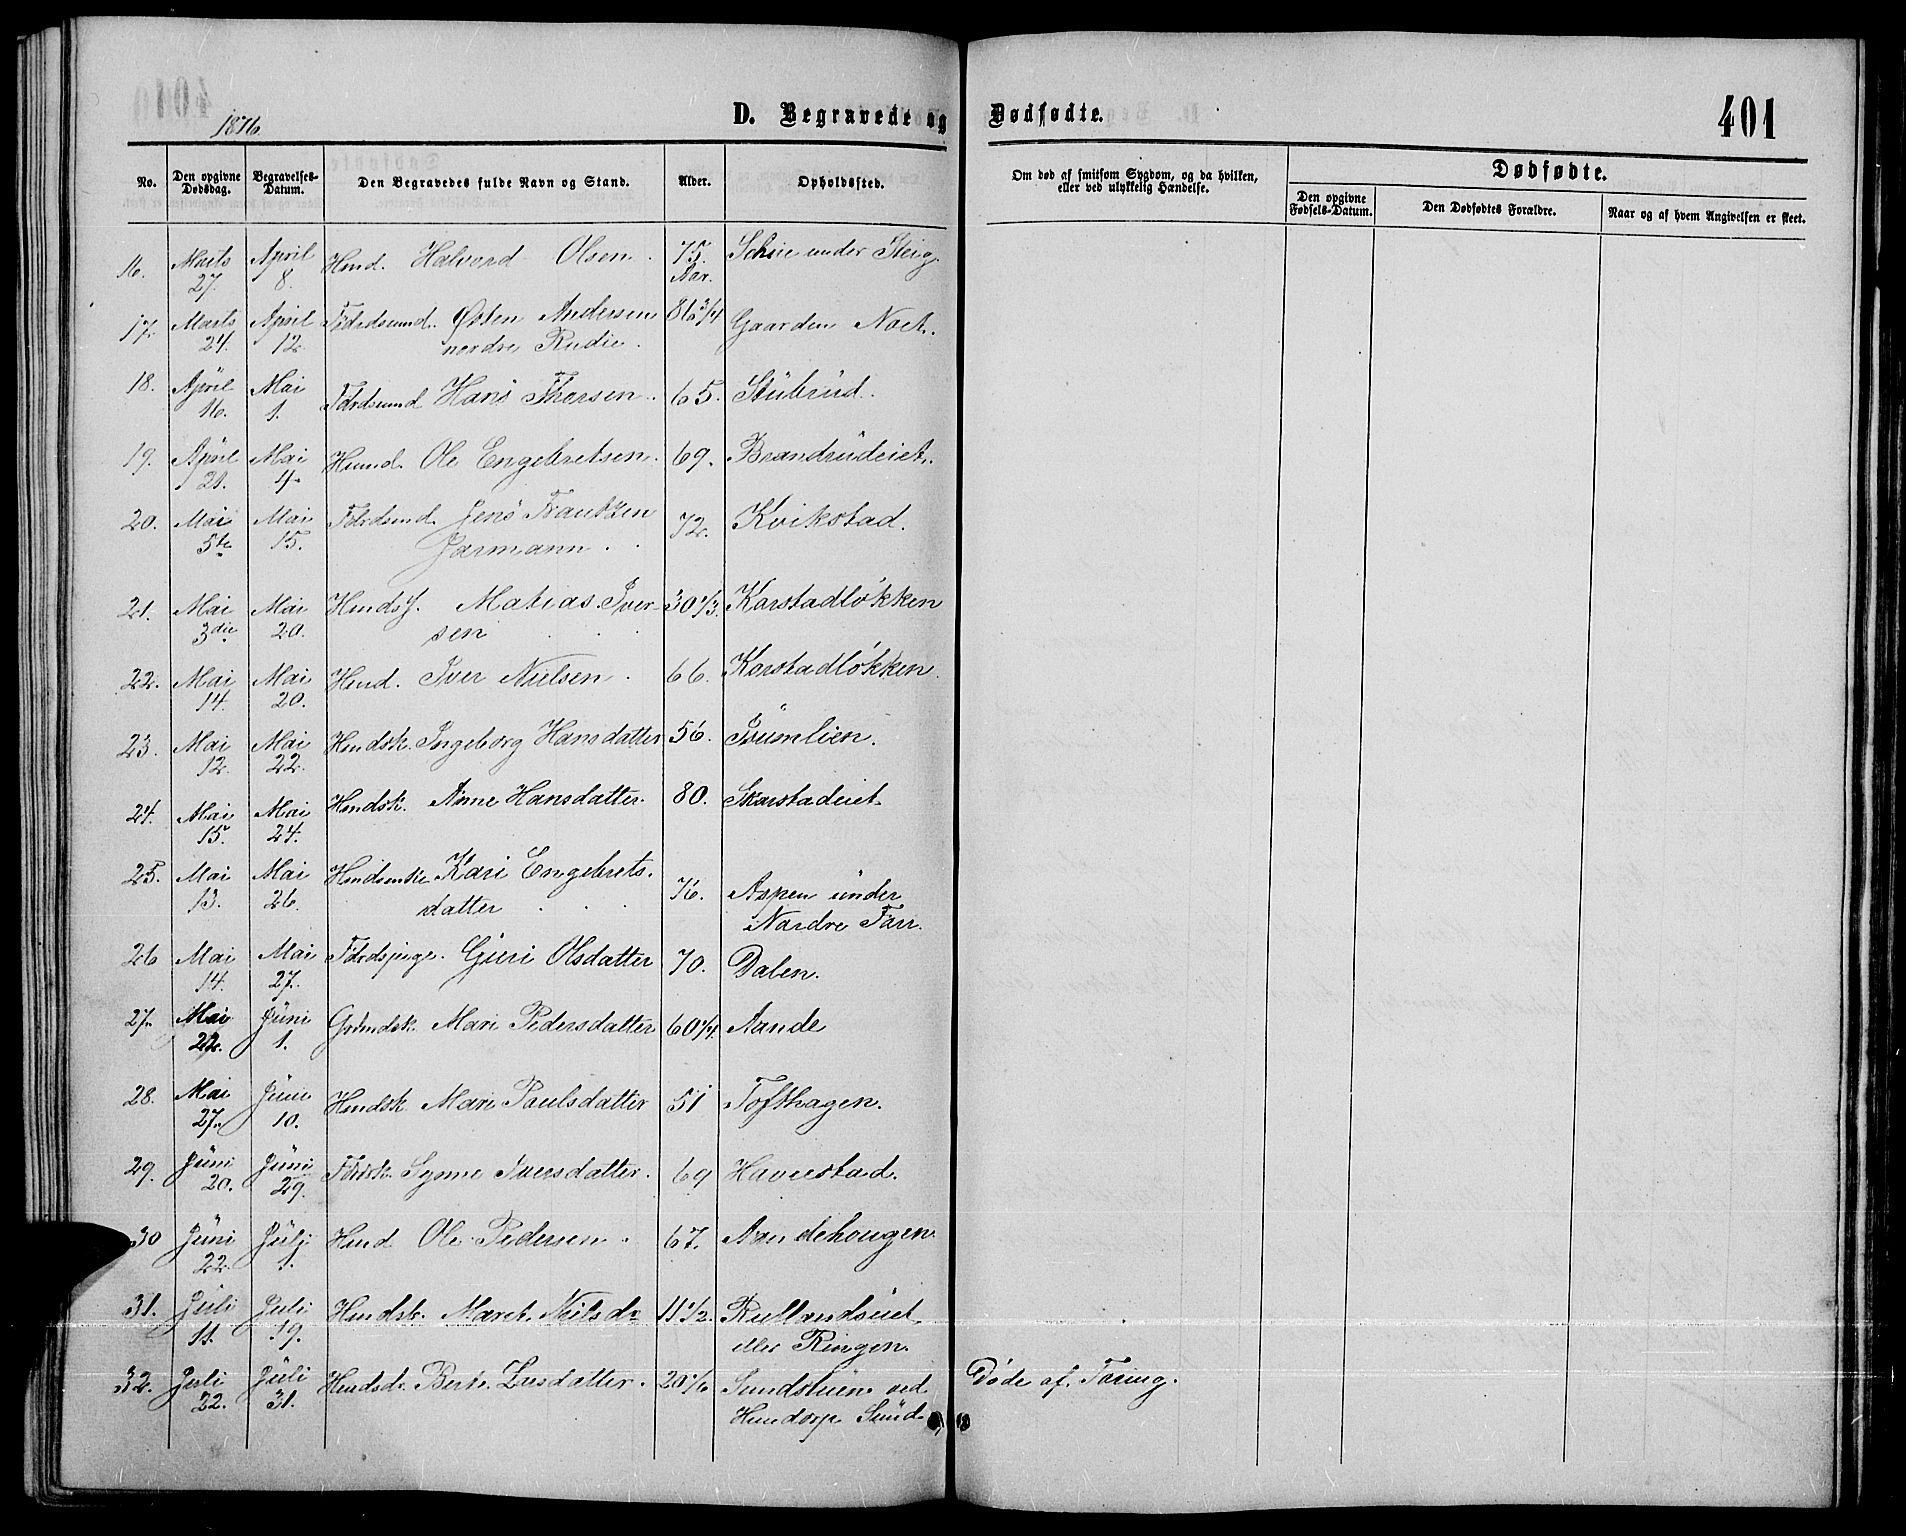 1876.
D. Begravede og Dødfødte.
401
No.
Den opgivne Dødsdag.
Begravelses-Datum.
Den Begravedes fulde Navn og Stand.
Alder.
Opholdssted.
Om død af smitsom Sygdom, og da hvilken, eller ved ulykkelig Hændelse.
Dødfødte.
Den opgivne Fødsels-Datum.
Den Dødfødtes Forældre.
Naar og af hvem Angivelsen er skeet.
16. Marts 27. April 8. Hmd. Halvord Olsen. 75. Aar. under Steig.
17. Marts 24. April 12. Fdrdsmd. Østen Andersen 86 3/4 Gaarden Noet.
nordre Rudie.
18. April 16. Mai 1. Fdrdsmd Hans Thorsen. 65. Stubrud.
19. April 21. Mai 4. Husmd. Ole Engebretsen. 69. Brandrudeiet.
20. Mai 5te Mai 15. Fdrdsmd. Jens Frantzen 72. Kvikstad.
Jarmann.
21. Mai 3die Mai 20. Hmds f. Matias Iver- 30 1/3. Karstadløkken
sen
22. Mai 14. Mai 20. Hmd. Iver Nielsen. 66. Karstadløkken.
23. Mai 12. Mai 22. Hmdsk. Ingeborg Hansdatter 56.
24. Mai 15. Mai 24. Hmdsk. Anne Hansdatter. 80. Skarstadeiet.
25. Mai 13. Mai 26. Hmdsenke Kari Engebrets- 76. Aspen under
datter Nordre Farr.
26 Mai 14. Mai 27. Fdrdspige. Guri Olsdatter 70. Dalen.
27. Mai 22. Juni 1. Grdmdsk. Mari Pedersdatter 60 1/4. Aande
28. Mai 27. Juni 10. Hmdsk. Mari Paulsdatter 51 Tofthagen.
29. Juni 20. Juni 29. Fdrdsk. Synne Iversdatter. 69 Haverstad.
30 Juni 22. Julj 1. Hmd Ole Pedersen. 67. Aandehougen.
31. Juli 11. Juli 19. Hmdsk. Maret. Nilsdr 11 1/2. Rullandseiet
eller Ringen.
32. Juli 22. Juli 31. Hmdsdr. Berte Larsdatter. 20 1/6 Sundstuen ved Døde af Tæring.
Hundorp Sund.